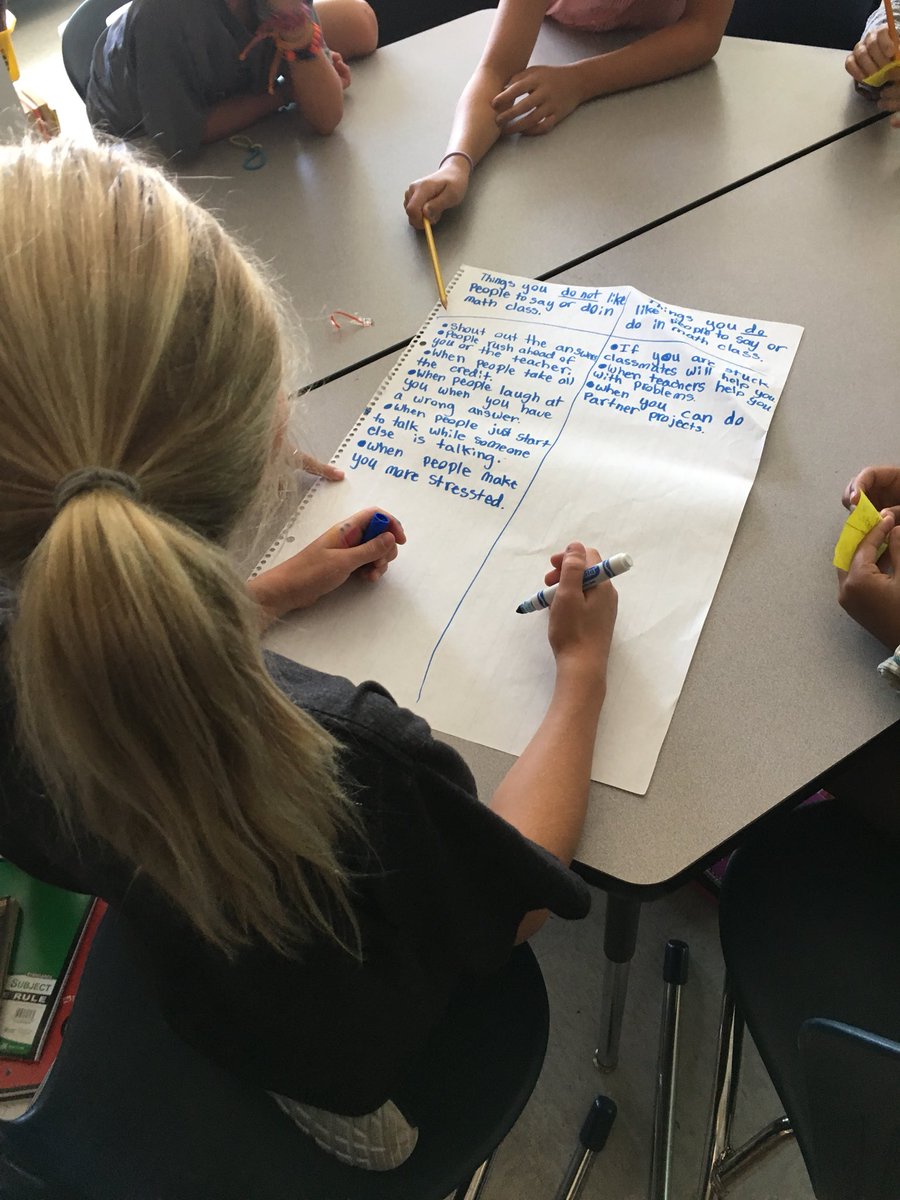 Things you do not like
People to say or do in
math class.
•Shout out the answer
•People rush ahead of
you or the teacher.
•When people take all
the credit.
•When people laugh at
you when you have
a wrong answer.
•when people just start
to talk while someone
else is talking.
•when people make
you more stressted.
Things you do
like people to say or
do in math class.
•If you are stuck
classmates will help you
•When teachers help you
with problems.
•when you can do
Partner projects.
SUBJECT
RULE